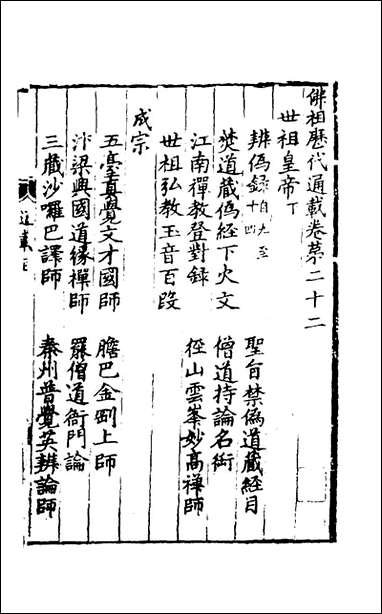 佛祖歷代通載卷第二十二
世祖皇帝下
辨偽錄自九至十四 聖旨禁偽道藏經目
焚道藏偽經下火文 僧道持論名銜
江南禪教登對錄 徑山雲峯妙高禪師
世祖弘教玉音百段
成宗
五臺真覺文才國師 膽巴金剛上師
汴梁興國道緣禪師 羅僧道衙門論
三藏沙囉巴譯師 秦州普覺英辨論師